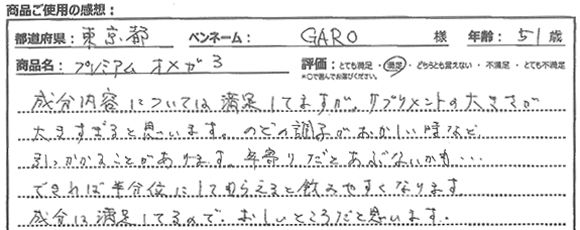 商品ご使用の感想：
都道府県：東京都 ペンネーム： GARO 様 年齢：51歳
商品名：プレミアム オメガ3 評価：・とても満足・満足・どちらとも言えない・不満足・とても不満足
*○で囲んでお選びください。
成分内容については満足してますが、サプリメントの大きさが
大きすぎると思います。のどの調子がおかしい時など
引っかかることがあります。年寄りだとあぶないかも・・・
できれば半分位にしてもらえると飲みやすくなります
成分は満足してるので、おしいところだと思います。